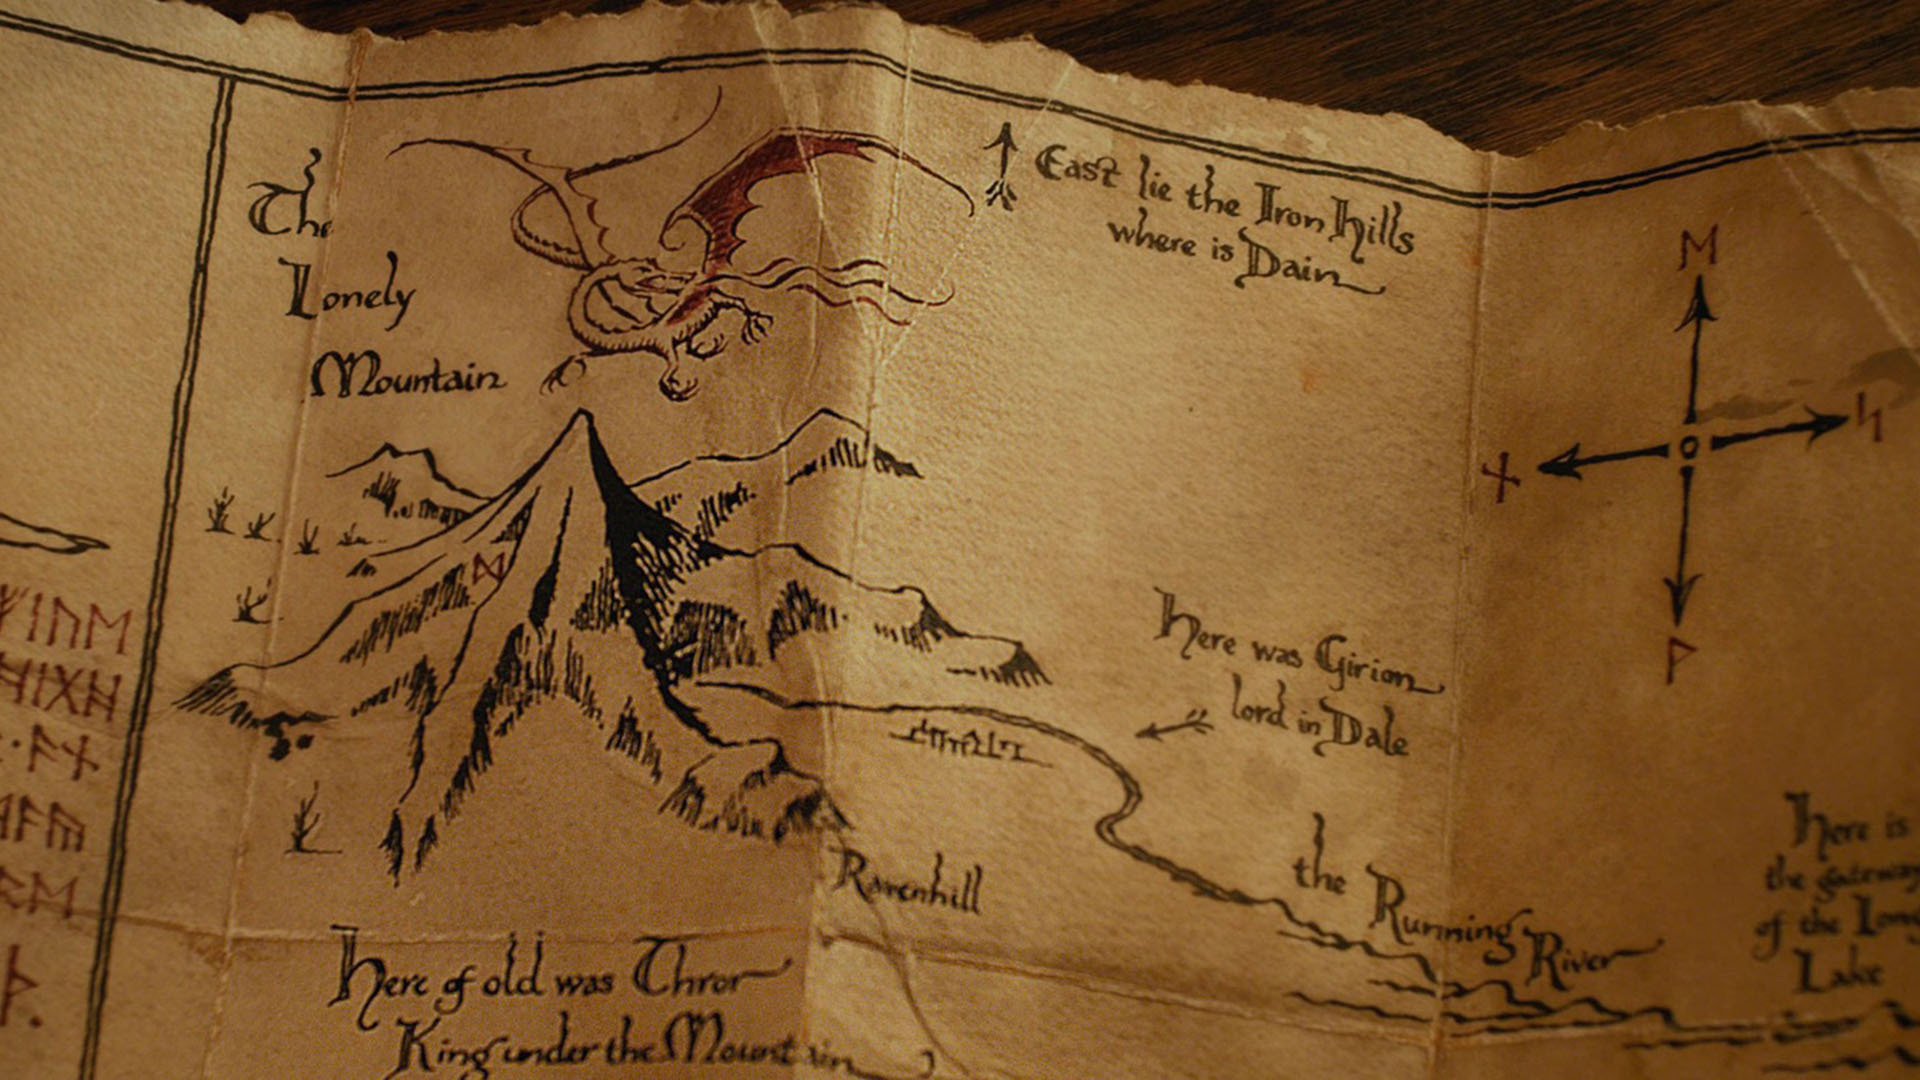 The
Lonely
Mountain
East lie the Iron Hills
where is Dain
ᛖ
ᚾ
ᛋ
ᚹ
ᛞ
ᚠᛁᚢᛖ
ᚻᛁᚷᚻ
Here was Girion
lord in Dale
the Running River
Ravenhill
Here is
the gateway
of the Long
Lake
Here of old was Thror
King under the Mountain